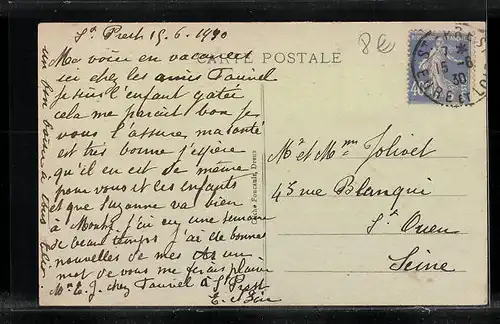 St Prest 15.6.1930
8€
CARTE POSTALE
Ma voici en vacances
ici chez les amis Faurel
je suis l'enfant gatée
cela me parait bon je
vous l'assure, ma santé
est très bonne j'espère
qu'il en est de même
pour vous et les enfants
et que Suzanne va bien
à j'ai eu une semaine
de beau temps j'ai de bonnes
nouvelles de mes un
mot de vous me ferais plaisir
Mme E. J. chez Faurel à St Prest
un bon baiser à tous
Cliché Foucault, Dreux
Mr et Mme Jolivet
43 rue Blanqui
St Ouen
Seine
15-6
30